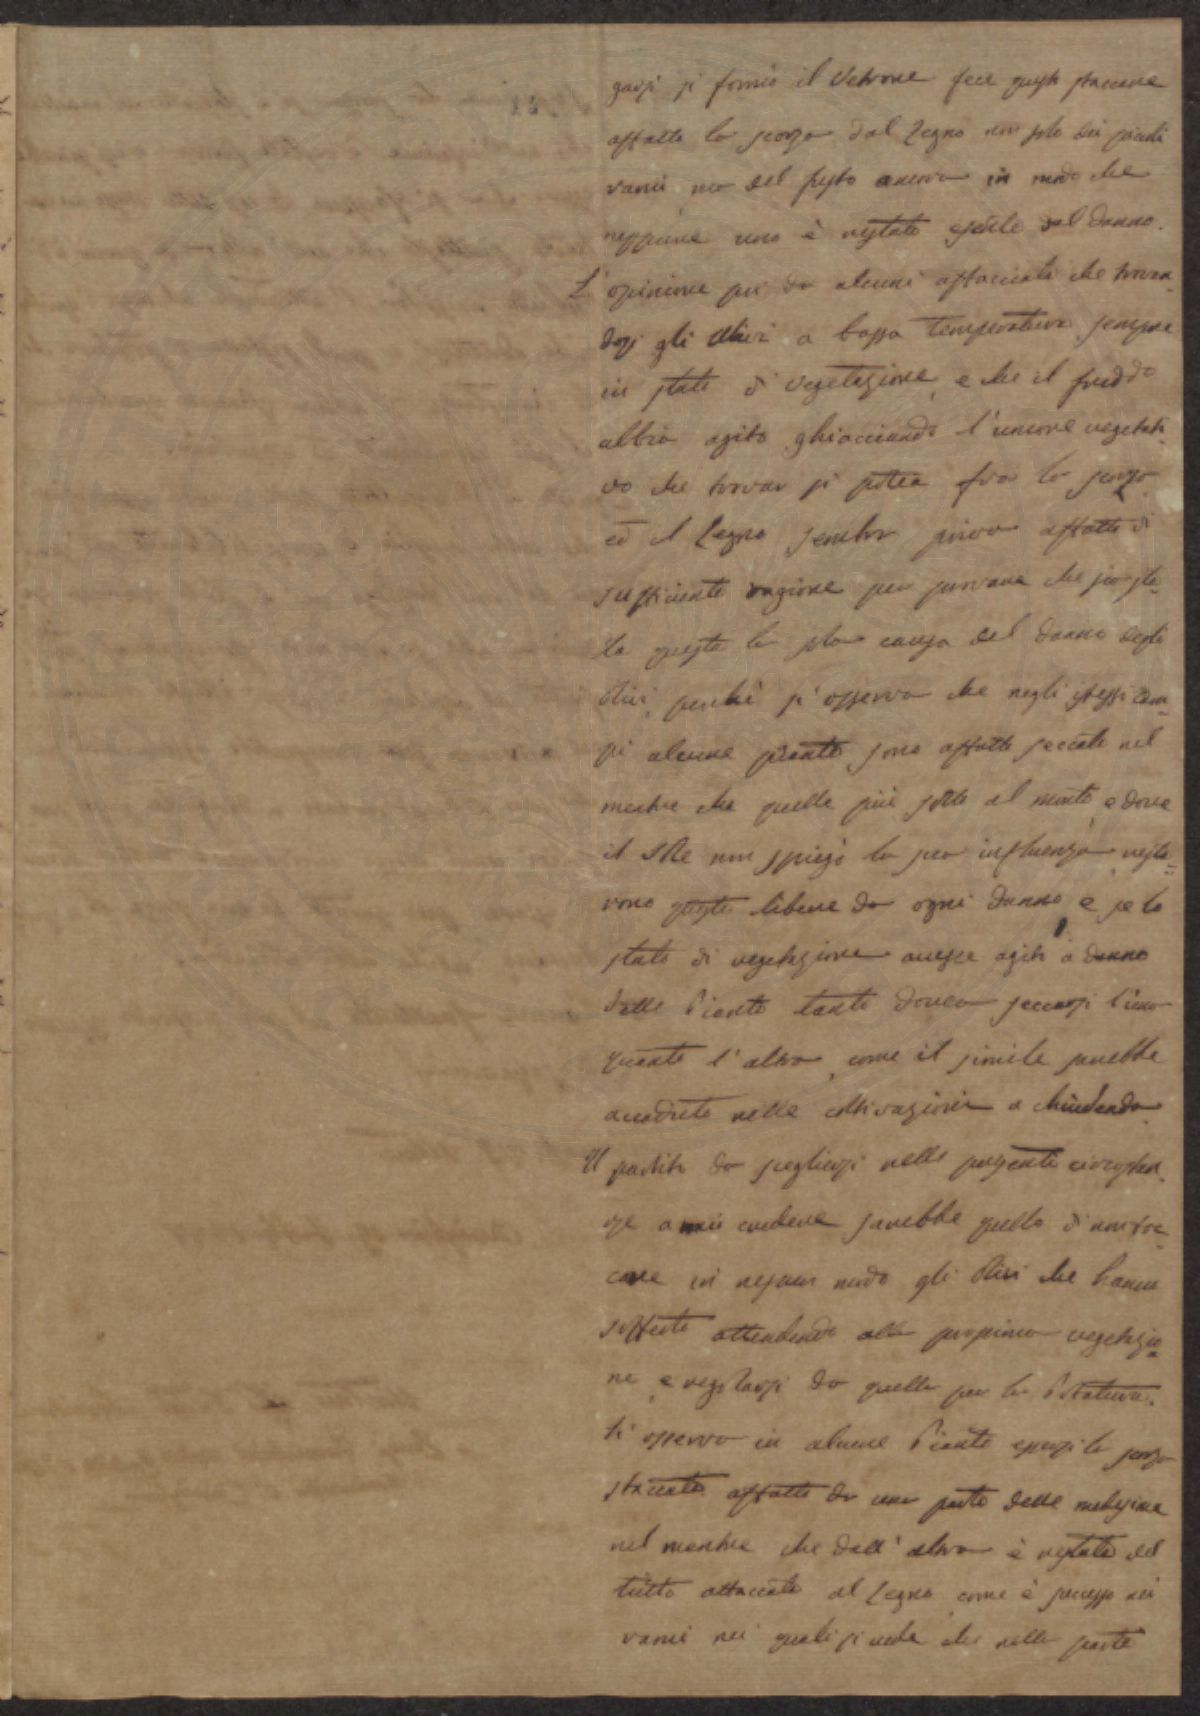 garsi si formò il Vetrone fece questi staccare
affatto la scorza dal Legno non solo dei piccoli
rami ma del fusto ancora in modo che
neppure uno è restato esente dal danno.
L'opinione poi da alcuni affacciata che trovan
dosi gli olivi a bassa temperatura sempre
in stato di vegetazione, e che il freddo
abbia agito ghiacciando l'umore vegetati
vo che trovar si potea fra la scorza
ed il Legno sembra priva affatto di
sufficiente ragione per provare che sia sta
ta questa la sola causa del danno degli
olivi, perchè si osserva che negli stessi cam=
pi alcune piante sono affatto seccate nel
mentre che quelle più sotto al monte, e dove
il Sole non spiegò la sua influenza resta=
rono queste libere da ogni danno, e se lo
stato di vegetazione avesse agito a danno
delle Piante tanto dovea seccarsi l'uno
quanto l'altro, come il simile sarebbe
accaduto nelle coltivazioni a
Il partito da scegliersi nelle presenti circostan
ze a mio credere sarebbe quello di non toc
care in nessun modo gli olivi che hanno
sofferto attendendo alla prossima vegetazio=
ne, e regolarsi da quella per la Potatura.
Si osserva in alcune Piante essersi la scorza
staccata affatto da una parte delle medesime
nel mentre che dall'altra è restata del
tutto attaccata al Legno, come è successo nei
rami nei quali si vede che nella parte